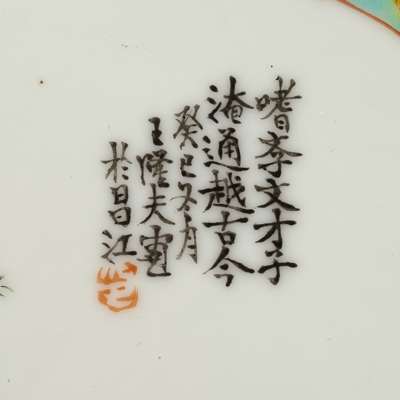 嗜斈文才子
淹通越古今
癸巳冬月
王隆夫寫
於昌江